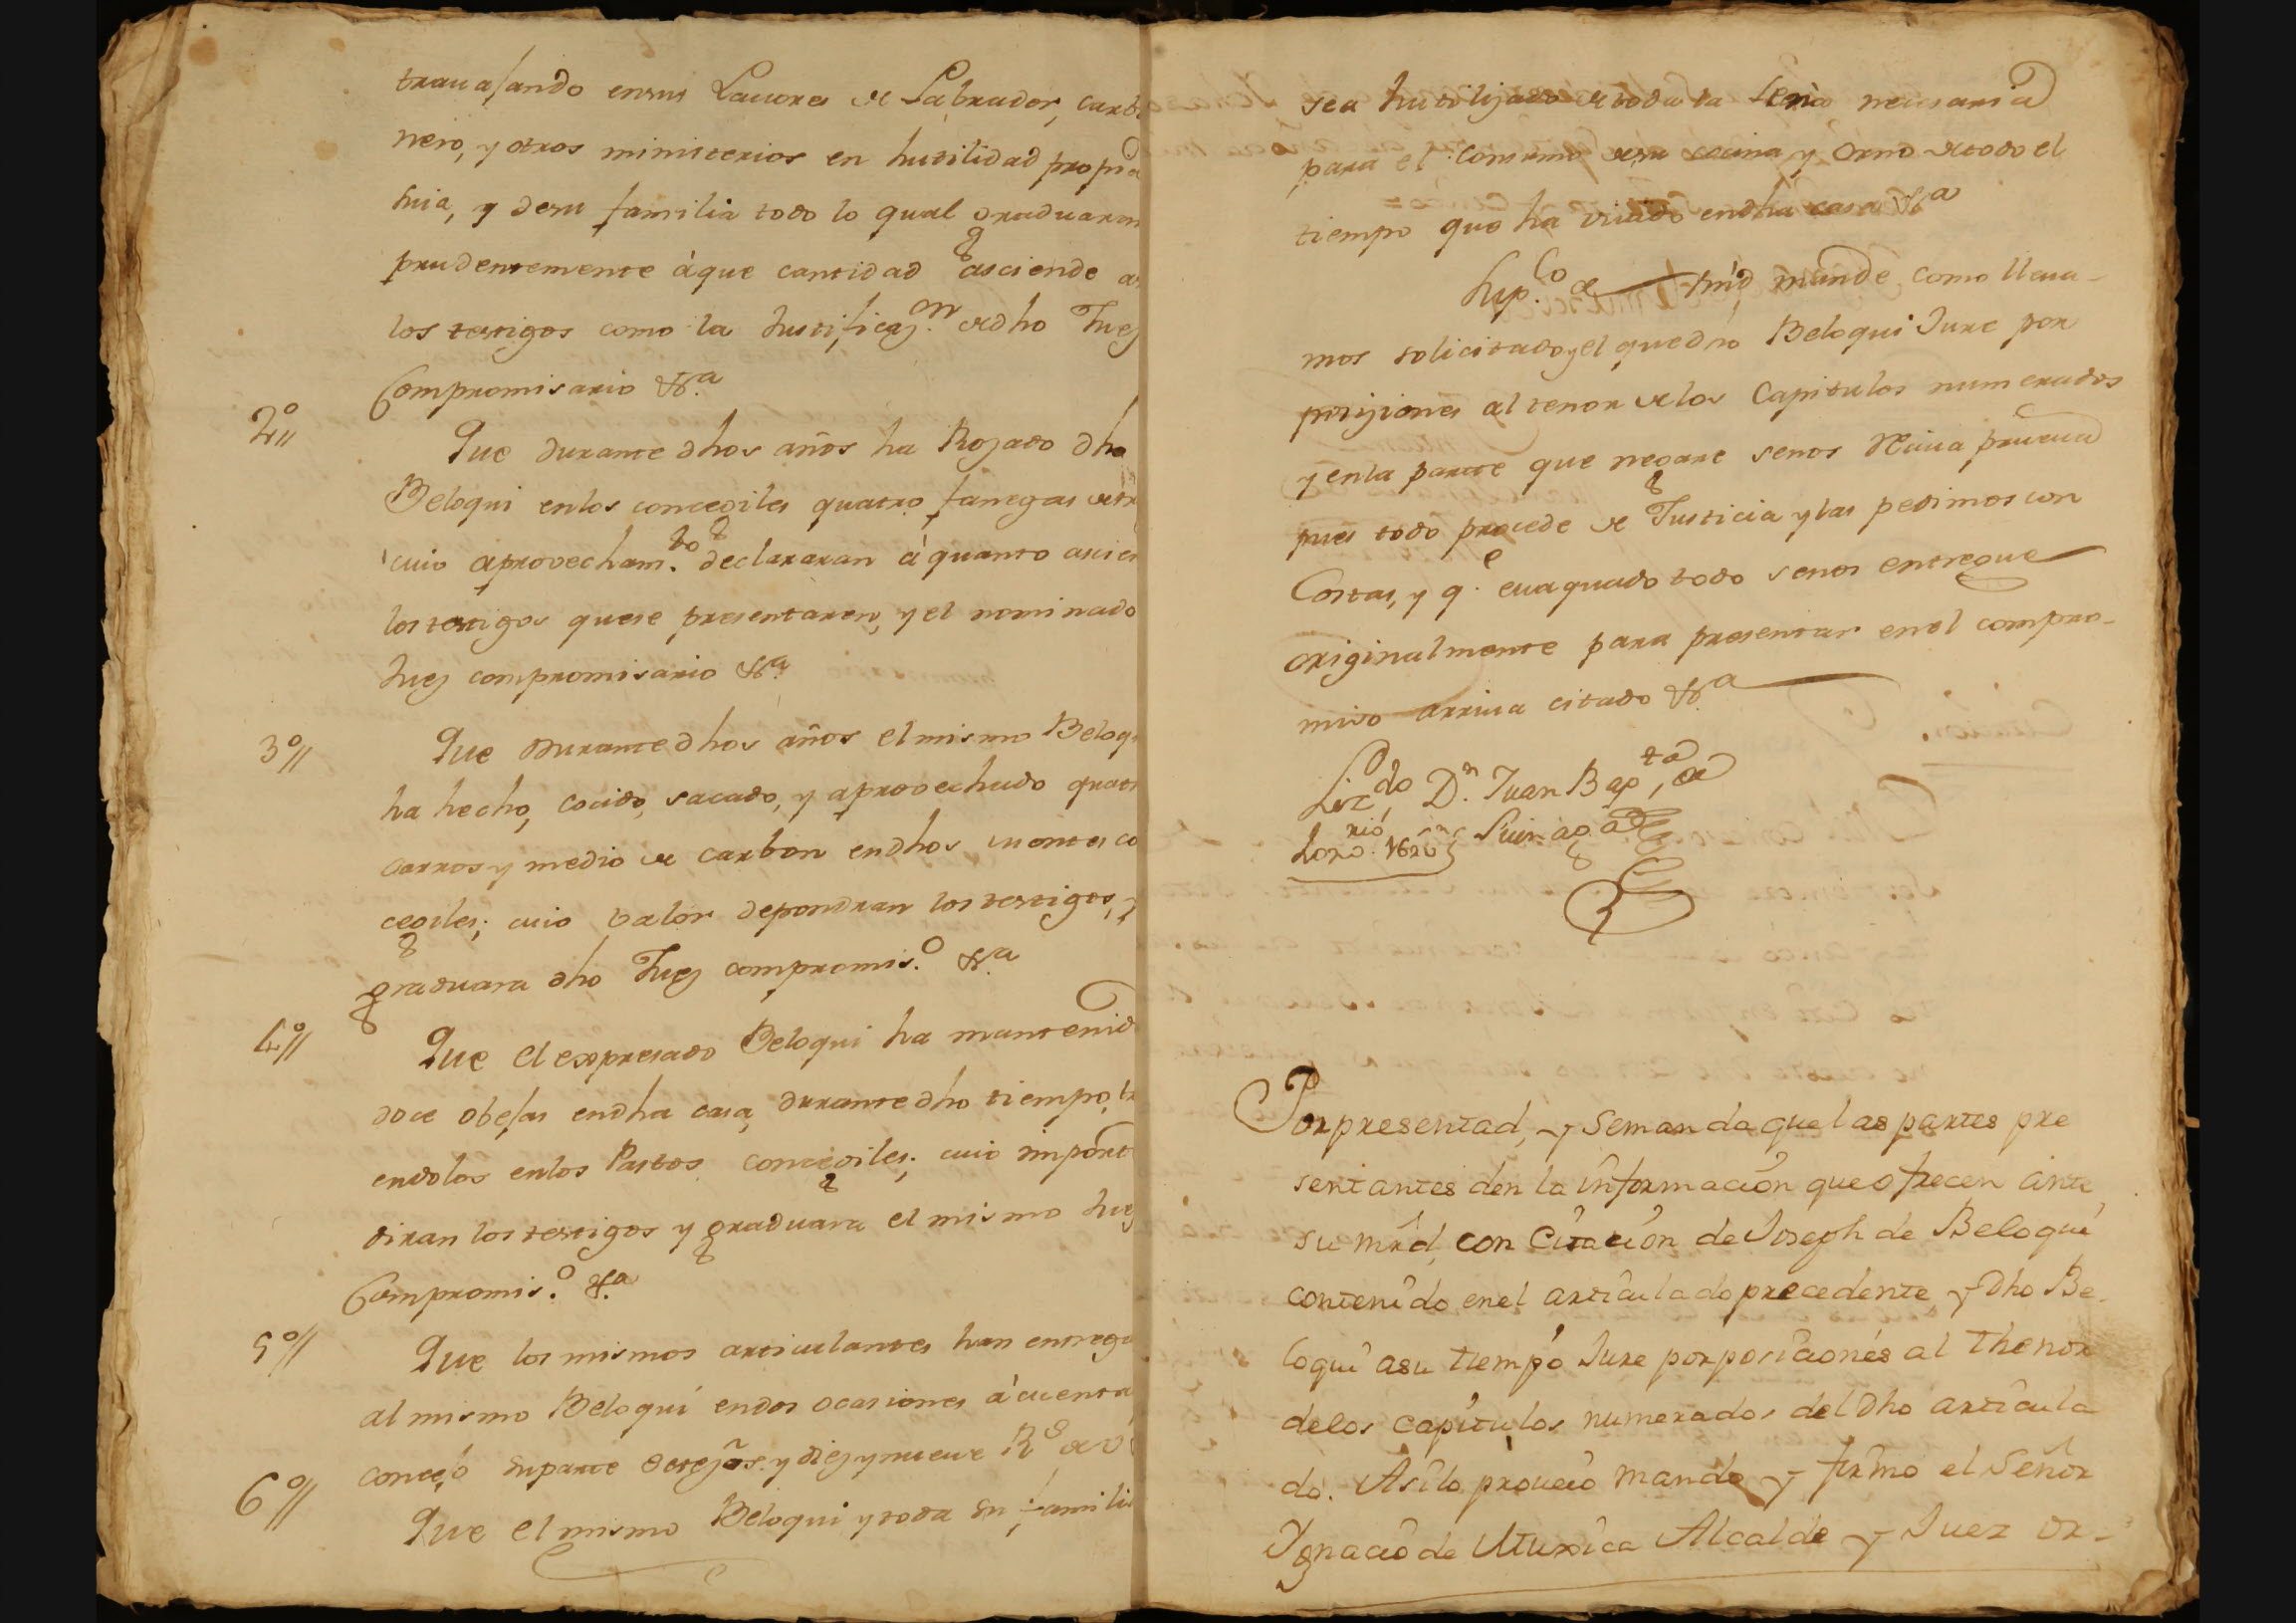 trauajando ensus Lauores de Labrador, carbo
nero, y otros ministerios en hutilidad propia
suia, y desu familia todo lo qual graduaran
prudentemente à que cantidad asciende as
los testigos como la Justificaz.on de dho Juez
Compromisario &.a
2º// Que durante dhos años ha Rozado dho
Beloqui enlos concegiles quatro fanegas de tr
cuio aprovecham.to declararan à quanto ascien
los testigos quese presentaren, y el nominado
Juez compromisario &.a
3º// Que Durante dhos años el mismo Beloqu
ha hecho, cocido, sacado, y aprovechado quatr
carros y medio de carbon endhos montes co
cegiles; cuio valor depondran los testigos, y
graduara dho Juez compromis.o &.a
4º// Que el expresado Beloqui ha mantenid
doce obejas endha casa, durante dho tiempo, tr
endolos enlos Pastos concegiles; cuio import
diran los testigos y graduara el mismo Juez
Compromis.o &.a
5º// Que los mismos articulantes han entrega
al mismo Beloqui endos ocasiones à cuenta
concejo suparte y diez y nueue R.s de v
6º// Que el mismo Beloqui y toda su familia
sea hutilizado de toda la leña necesaria
para el consumo desu cocina y Orno de todo el
tiempo que ha viuido endha casa &.a
Sup.co a Vmd mande como lleua-
mos solicitado, y el quedho Beloqui Jure por
posiziones al tenor de los Capitulos numerados
y enla parte que negare senos Reciua prueua
pues todo procede de Justicia y las pedimos con
Costas, y q.e euaquado todo senos entregue
originalmente para presentar enel compro-
miso arriua citado &.a
Liz.do D.n Juan Bap.ta de
Suinaga
Por presentad, y Semanda que las partes pre
sentantes den la informacion que ofrecen ante
su mrd, con Citacion de Joseph de Beloqui
contenido enel articulado precedente, y Dho Be-
loqui asu tiempo Jure por posiciones al thenor
delos capitulos numerados del Dho articula
do. Asilo proueio mando y firmo el Señor
Ygnacio de Iturrica Alcalde y Juez or-